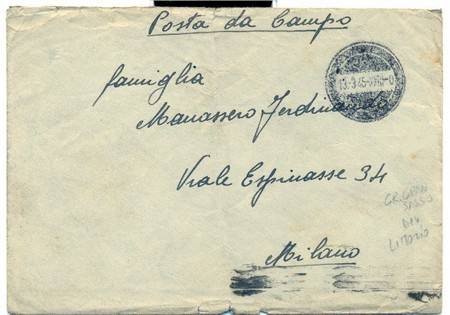 Posta da Campo
13.3.45-XXIII-0
famiglia
Manassero Ferdinando
Viale Espinasse 34
GR. GRAN
SASSO
DIV.
LITTORIO
Milano